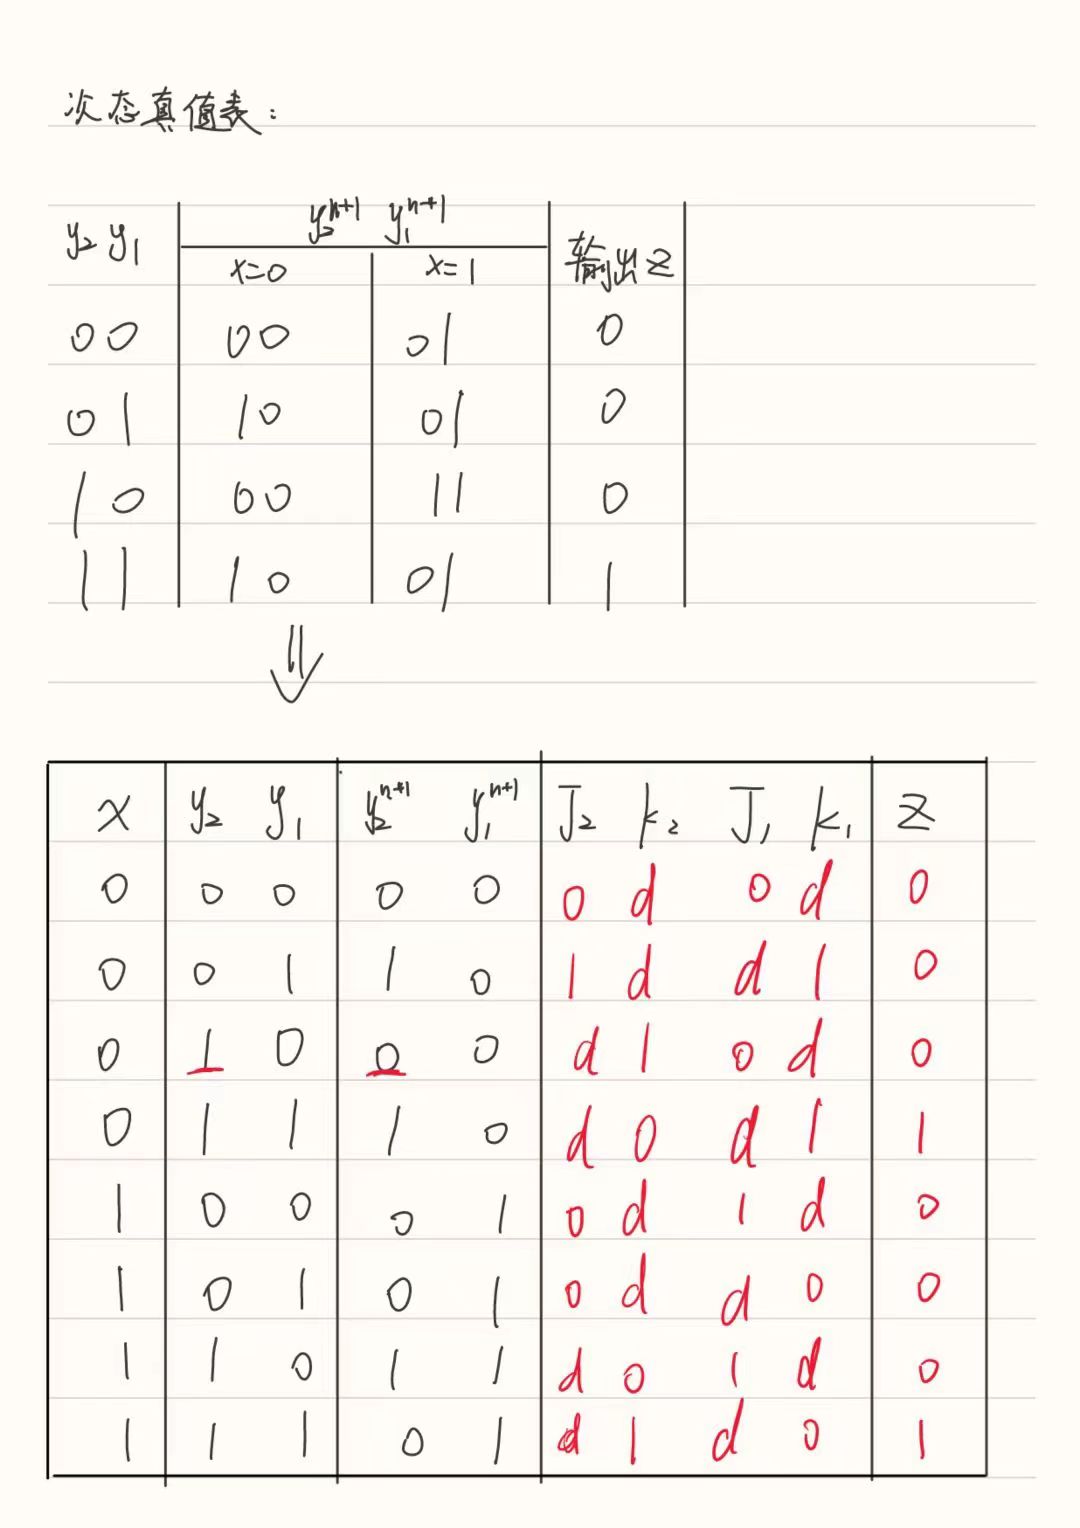 次态真值表：
y₂ y₁ y₂ⁿ⁺¹ y₁ⁿ⁺¹ 输出 Z
x=0 x=1
00 00 01 0
01 10 01 0
10 00 11 0
11 10 01 1
⇓
x y₂ y₁ y₂ⁿ⁺¹ y₁ⁿ⁺¹ J₂ k₂ J₁ k₁ Z
0 0 0 0 0 0 d 0 d 0
0 0 1 1 0 1 d d 1 0
0 1 0 0 0 d 1 0 d 0
0 1 1 1 0 d 0 d 1 1
1 0 0 0 1 0 d 1 d 0
1 0 1 0 1 0 d d 0 0
1 1 0 1 1 d 0 1 d 0
1 1 1 0 1 d 1 d 0 1